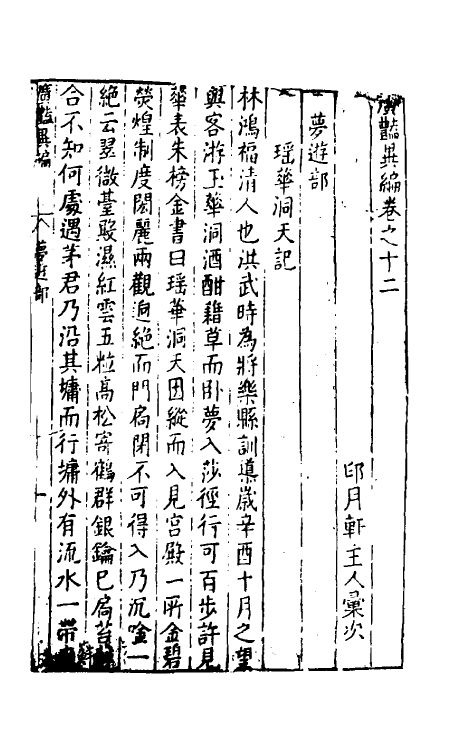 廣豔異編卷之十二
印月軒主人彙次
夢遊部
瑤華洞天記
林鴻福清人也洪武時為將樂縣訓導歲辛酉十月之望
與客游玉華洞酒酣藉草而卧夢入莎徑行可百步許見
華表朱榜金書曰瑤華洞天因縱而入見宮殿一所金碧
熒煌制度閎麗兩觀迥絶而門扃閉不可得入乃沉唫一
絶云翠微臺殿濕紅雲五粒高松寄鶴群銀鑰已扃苔
合不知何處遇茅君乃沿其墉而行墉外有流水一帶
廣豔異編 夢遊部 一